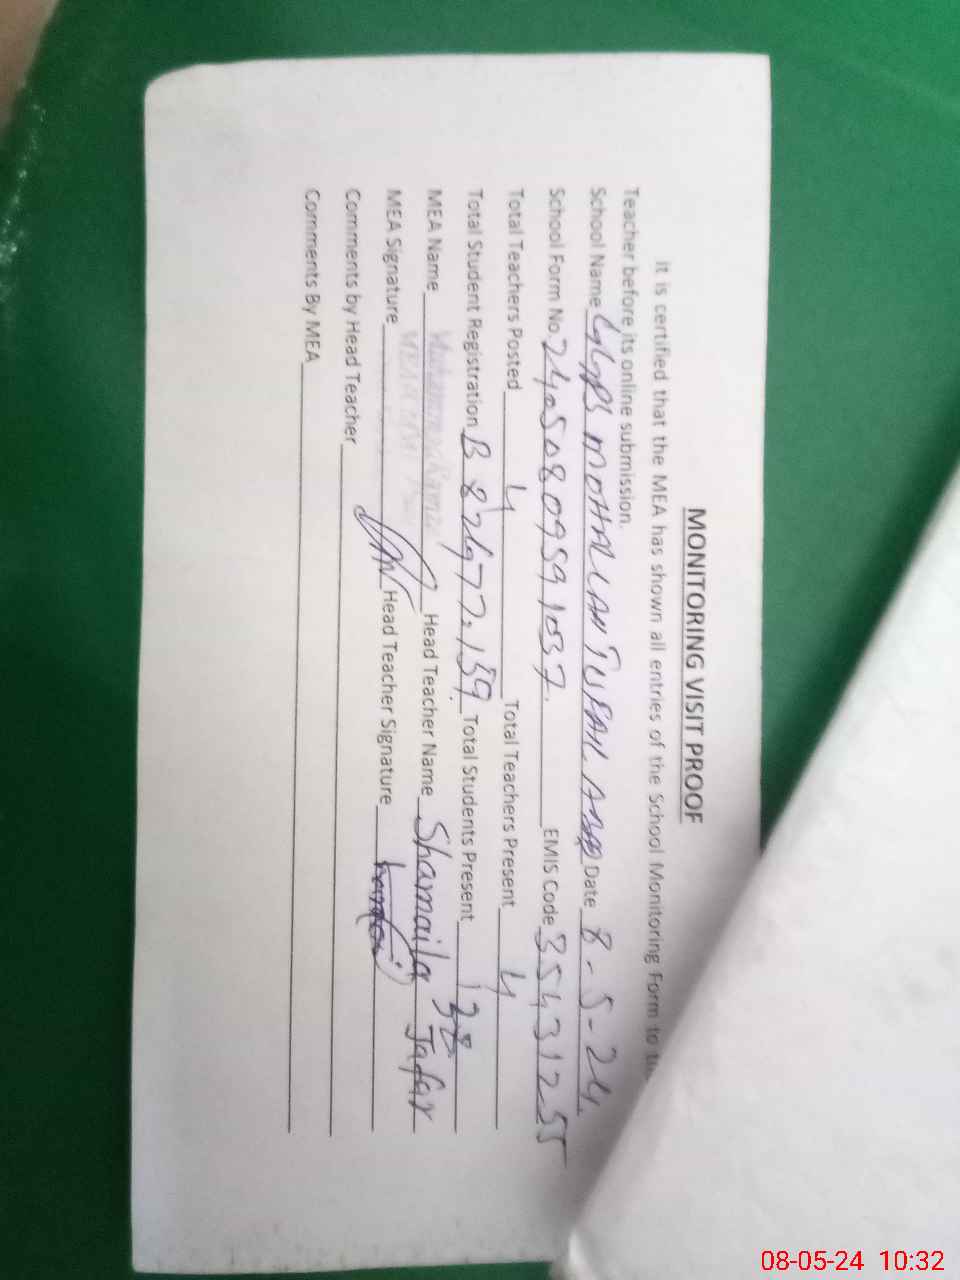 MONITORING VISIT PROOF
it is certified that the MEA has shown all entries of the School Monitoring Form to
Teacher before its online submission.
School Name GGPS MOHALLAH TUFAIL ABAD Date 8-5-24
School Form No. 24050809591037. EMIS Code 35431255
Total Teachers Posted 4 Total Teachers Present 4
Total Student Registration B 82 G 77 = 159 Total Students Present 138
MEA Name Head Teacher Name Shamaila Jafar
MEA Signature Head Teacher Signature
Comments by Head Teacher
Comments By MEA
08-05-24 10:32